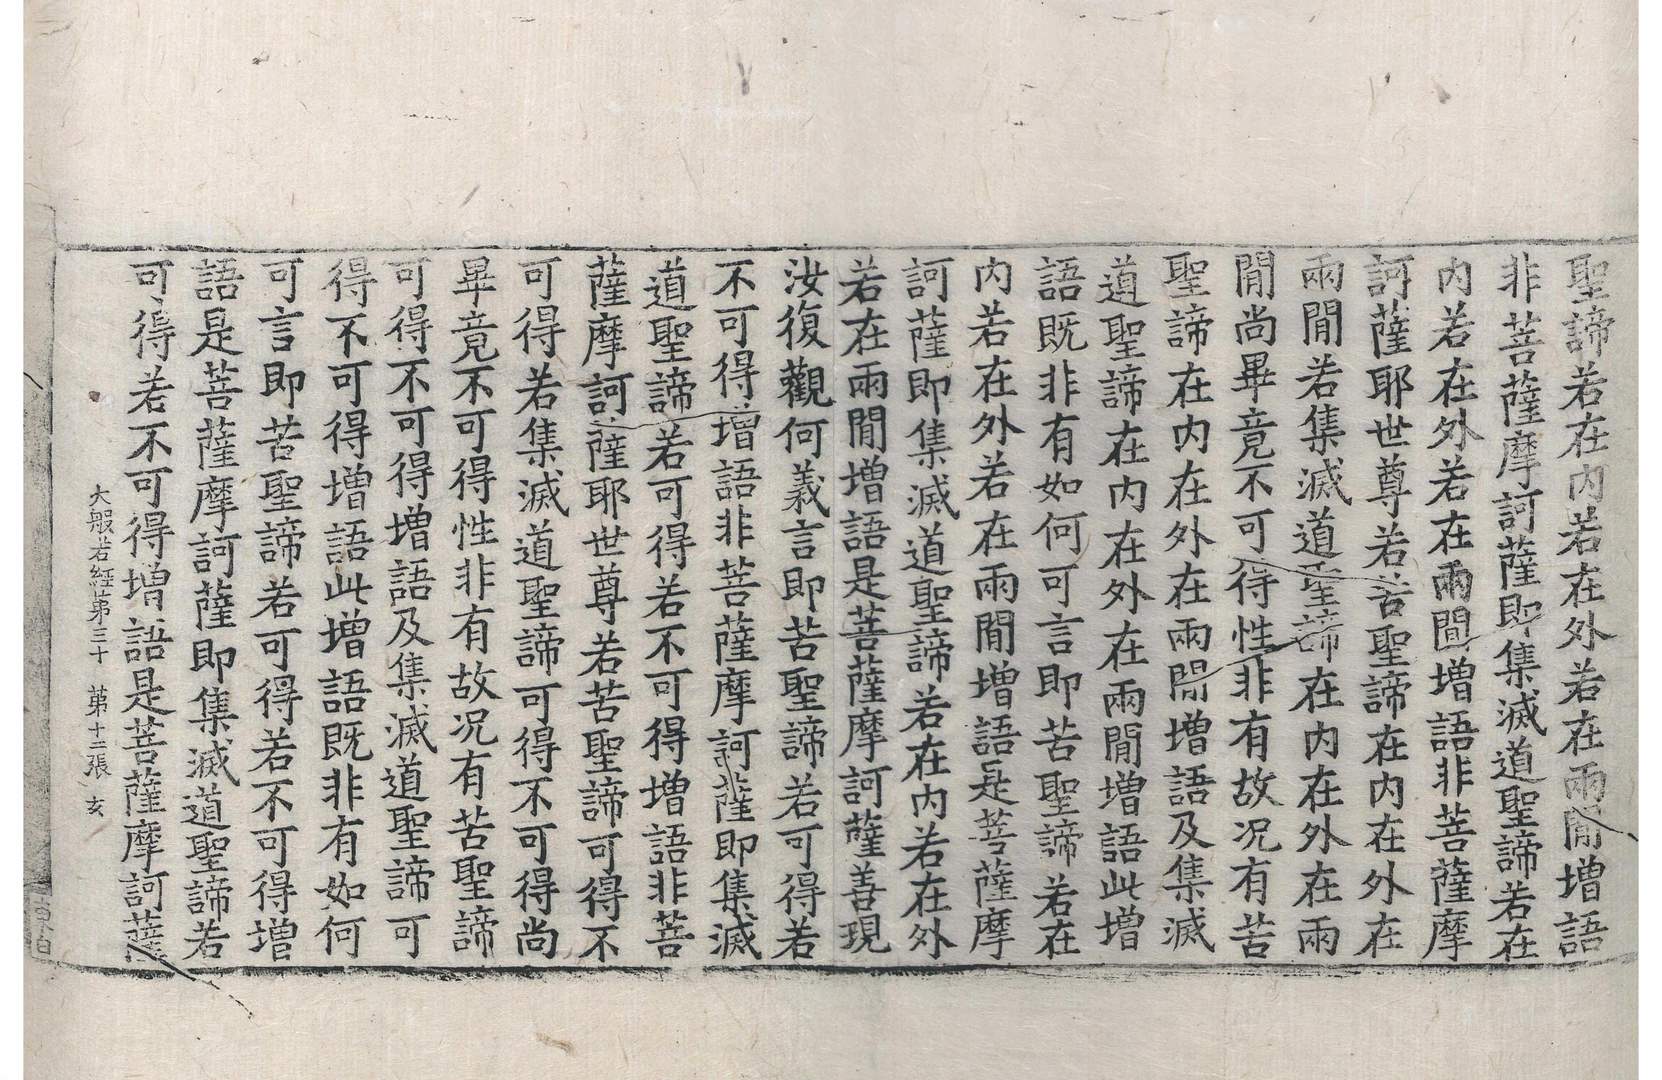 聖諦若在內若在外若在兩閒增語
非菩薩摩訶薩即集滅道聖諦若在
內若在外若在兩閒增語非菩薩摩
訶薩耶世尊若苦聖諦在內在外在
兩閒若集滅道聖諦在內在外在兩
閒尚畢竟不可得性非有故況有苦
聖諦在內在外在兩閒增語及集滅
道聖諦在內在外在兩閒增語此增
語既非有如何可言即苦聖諦若在
內若在外若在兩閒增語是菩薩摩
訶薩即集滅道聖諦若在內若在外
若在兩閒增語是菩薩摩訶薩善現
汝復觀何義言即苦聖諦若可得若
不可得增語非菩薩摩訶薩即集滅
道聖諦若可得若不可得增語非菩
薩摩訶薩耶世尊若苦聖諦可得不
可得若集滅道聖諦可得不可得尚
畢竟不可得性非有故況有苦聖諦
可得不可得增語及集滅道聖諦可
得不可得增語此增語既非有如何
可言即苦聖諦若可得若不可得增
語是菩薩摩訶薩即集滅道聖諦若
可得若不可得增語是菩薩摩訶薩
大般若經第三十 第十二張 玄